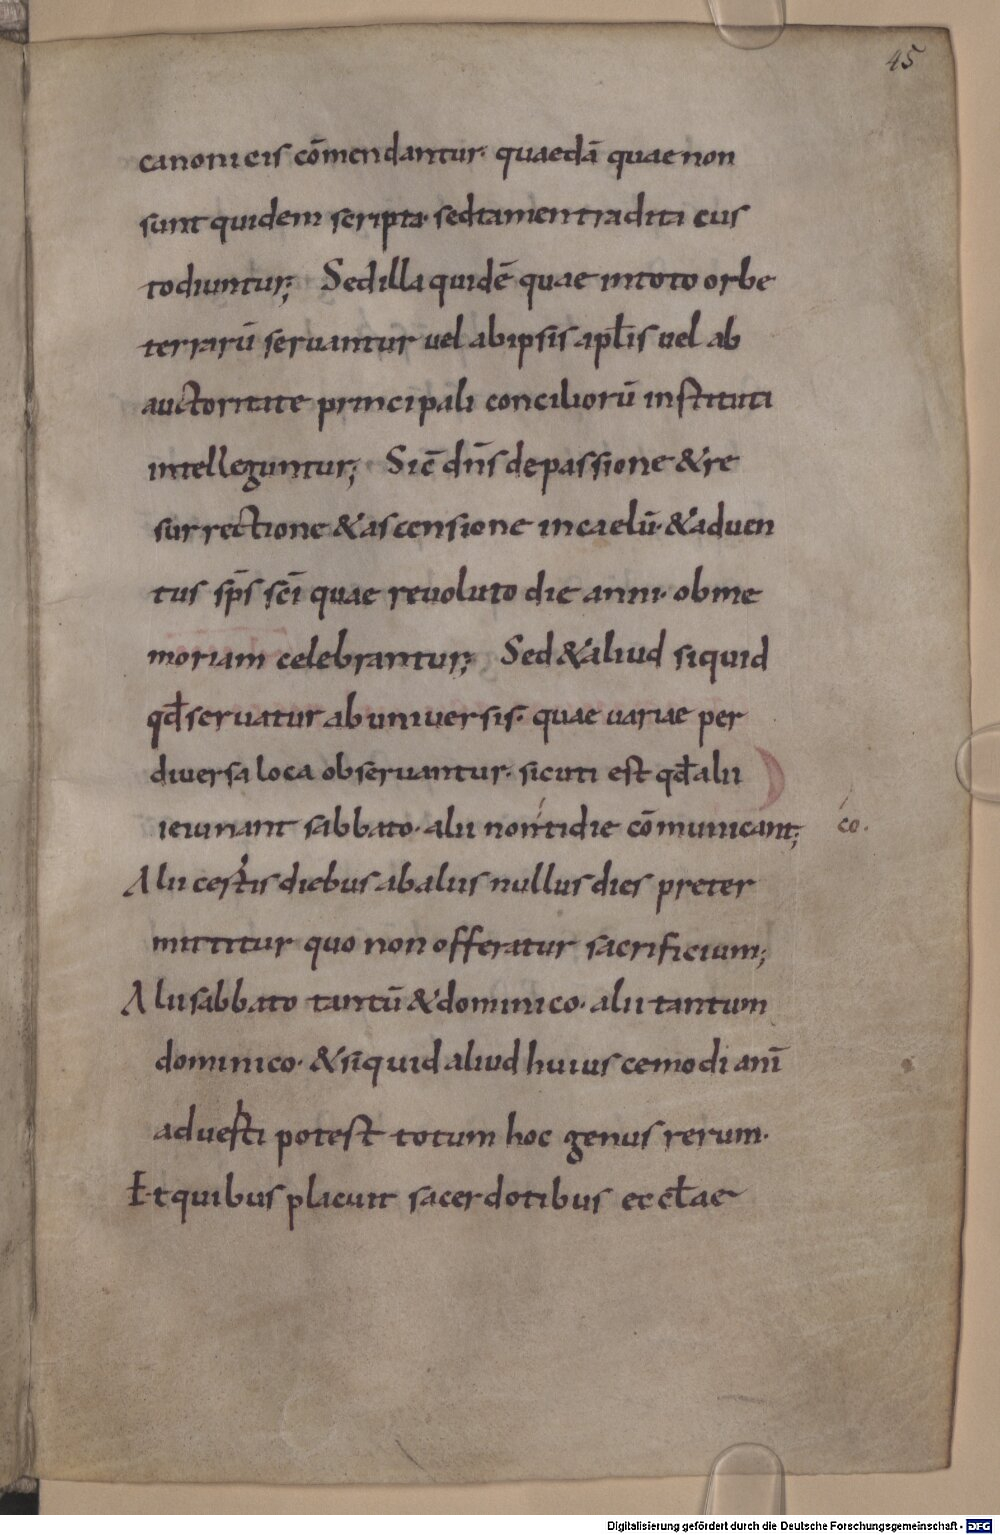 45
canonicis cōmendantur· quaedā quae non
sunt quidem scripta· sed tamen traditi cus
todiuntur; Sed illa quidē quae in toto orbe
terrarū seruantur uel ab ipsis apƚis uel ab
auctoritate principali conciliorū instituti
intelleguntur; Sic̄ dn̄s de passione & re
surrectione & ascensione in caelū· & aduen
tus sp̄s sc̄i quae reuoluto die anni· ob me
moriam celebrantur; Sed & aliud siquid
qđ seruatur ab uniuersis· quae uariae per
diuersa loca obseruantur· sicuti est qđ alii
ieiunant sabbato· alii non ́tidie cōmunicant; ́co·
Alii certis diebus ab aliis nullus dies preter
mittitur quo non offeratur sacrificium;
Alii sabbato tantū & dominico· alii tantum
dominico· & siquid aliud huiuscemodi ani
aduerti potest totum hoc genus rerum·
Et quibus placuit sacerdotibus eccƚae
Digitalisierung gefördert durch die Deutsche Forschungsgemeinschaft - DFG